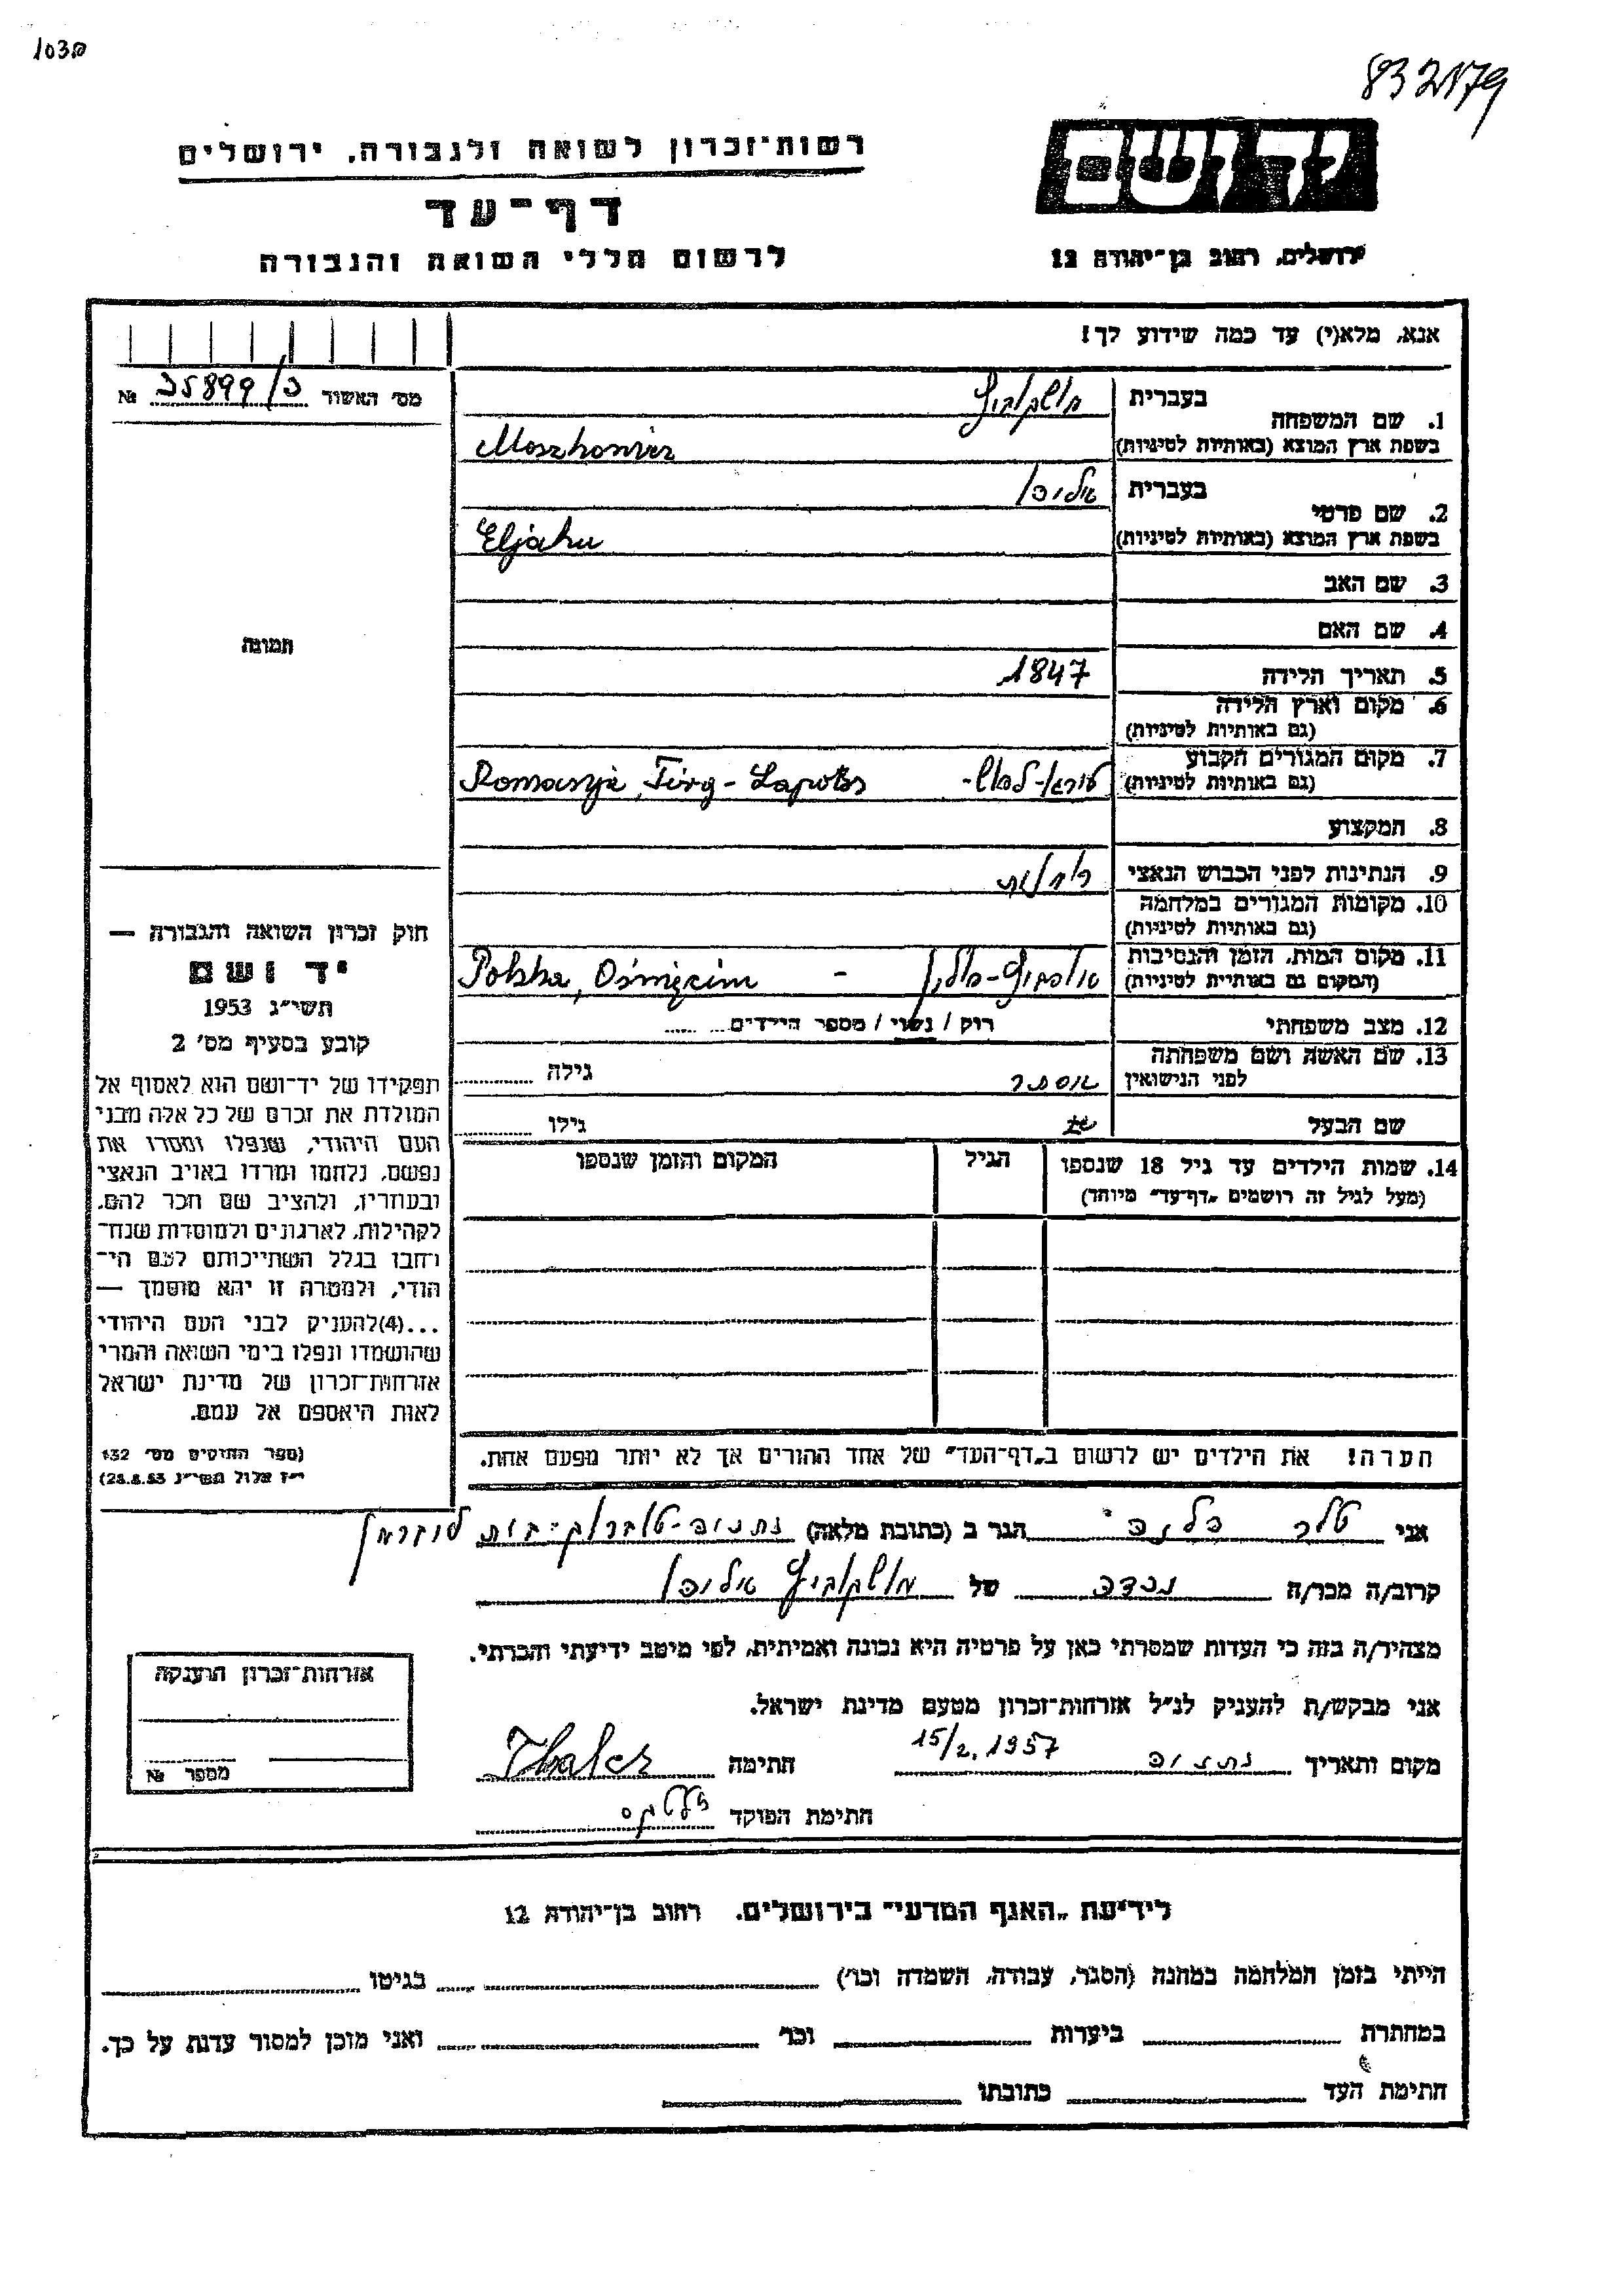 103מ
832179
יד ושם
ירושלים, רחוב בן־יהודה 12
רשות־זכרון לשואה ולגבורה, ירושלים
דף־עד
לרשום חללי השואה והגבורה
אנא, מלא(י) עד כמה שידוע לך!
מס׳ האשור № 35899/כ
1. שם המשפחה
בעברית מושקוביץ
בשפת ארץ המוצא (באותיות לטיניות) Moszkowicz
2. שם פרטי
בעברית אליהו
בשפת ארץ המוצא (באותיות לטיניות) Eljahu
3. שם האב
4. שם האם
5. תאריך הלידה 1847
6. מקום וארץ הלידה
(גם באותיות לטיניות)
7. מקום המגורים הקבוע
(גם באותיות לטיניות) Romanja, Tirg-Lapotos
8. המקצוע
9. הנתינות לפני הכבוש הנאצי
10. מקומות המגורים במלחמה
(גם באותיות לטיניות)
11. מקום המות, הזמן והנסיבות
(המקום גם באותיית לטיניות) אושביץ-פולין - Polska, Oświęcim
12. מצב משפחתי רוק / נשוי / מספר הילדים
13. שם האשה ושם משפחתה
לפני הנישואין אסתר גילה
שם הבעל גילו
14. שמות הילדים עד גיל 18 שנספו
(מעל לגיל זה רושמים „דף־עד״ מיוחד)
הגיל
המקום והזמן שנספו
הערה! את הילדים יש לרשום ב„דף־העד״ של אחד ההורים אך לא יותר מפעם אחת.
תמונה
חוק זכרון השואה והגבורה —
יד ושם
תשי״ג 1953
קובע בסעיף מס׳ 2
תפקידו של יד־ושם הוא לאסוף אל
המולדת את זכרם של כל אלה מבני
העם היהודי, שנפלו ומסרו את
נפשם, נלחמו ומרדו באויב הנאצי
ובעוזריו, ולהציב שם וזכר להם,
לקהילות, לארגונים ולמוסדות שנח־
רחבו בגלל השתייכותם לעם הי־
הודי, ולמטרה זו יהא מוסמך —
...(4)להעניק לבני העם היהודי
שהושמדו ונפלו בימי השואה והמרי
אזרחות־זכרון של מדינת ישראל
לאות היאספם אל עמם.
(ספר החוקים מס׳ 132
י״ז אלול תשי״ג 28.8.53)
אני טלר הגר ב (כתובת מלאה) נתניה-
קרוב/ה מכר/ה נכדה של מושקוביץ אליהו
מצהיר/ה בזה כי העדות שמסרתי כאן על פרטיה היא נכונה ואמיתית, לפי מיטב ידיעתי והכרתי.
אני מבקש/ת להעניק לנ״ל אזרחות־זכרון מטעם מדינת ישראל.
מקום ותאריך נתניה 15/2.1957 חתימה Thaler
חתימת הפוקד
אזרחות־זכרון הוענקה
מספר №
לידיעת „האגף המדעי״ בירושלים, רחוב בן־יהודה 12
הייתי בזמן המלחמה במחנה (הסגר, עבודה, השמדה וכו׳) בגיטו
במחתרת ביערות וכו׳ ואני מוכן למסור עדות על כך.
חתימת העד כתובתו